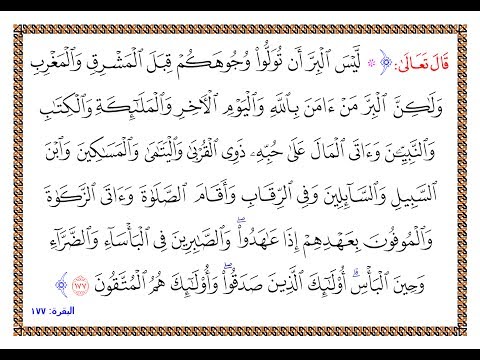 قَالَ تَعَالَىٰ: ﴿ ۞ لَّيْسَ ٱلْبِرَّ أَن تُوَلُّوا۟ وُجُوهَكُمْ قِبَلَ ٱلْمَشْرِقِ وَٱلْمَغْرِبِ
وَلَـٰكِنَّ ٱلْبِرَّ مَنْ ءَامَنَ بِٱللَّهِ وَٱلْيَوْمِ ٱلْـَٔاخِرِ وَٱلْمَلَـٰٓئِكَةِ وَٱلْكِتَـٰبِ
وَٱلنَّبِيِّـۧنَ وَءَاتَى ٱلْمَالَ عَلَىٰ حُبِّهِۦ ذَوِى ٱلْقُرْبَىٰ وَٱلْيَتَـٰمَىٰ وَٱلْمَسَـٰكِينَ وَٱبْنَ
ٱلسَّبِيلِ وَٱلسَّآئِلِينَ وَفِى ٱلرِّقَابِ وَأَقَامَ ٱلصَّلَوٰةَ وَءَاتَى ٱلزَّكَوٰةَ
وَٱلْمُوفُونَ بِعَهْدِهِمْ إِذَا عَـٰهَدُوا۟ ۖ وَٱلصَّـٰبِرِينَ فِى ٱلْبَأْسَآءِ وَٱلضَّرَّآءِ
وَحِينَ ٱلْبَأْسِ ۗ أُو۟لَـٰٓئِكَ ٱلَّذِينَ صَدَقُوا۟ ۖ وَأُو۟لَـٰٓئِكَ هُمُ ٱلْمُتَّقُونَ ١٧٧ ﴾
البقرة: ١٧٧